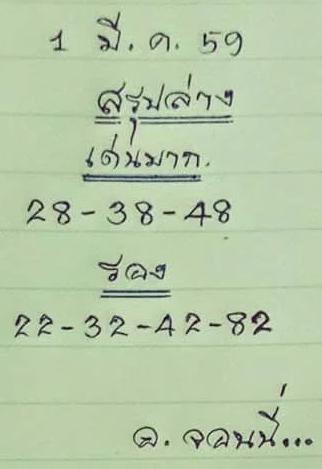 1 มี.ค. 59
สรุปล่าง
เด่นมาก.
28-38-48
รอง
22-32-42-82
อ. จอนนี่...